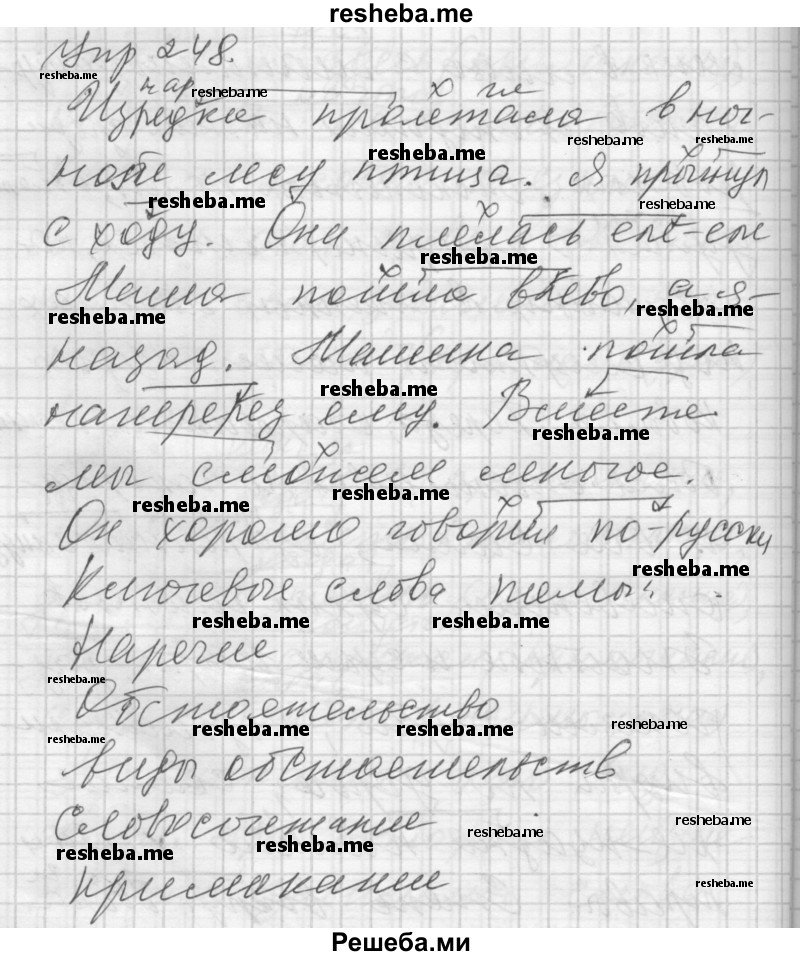 resheba.me
Упр 248.
resheba.me
нар. х гл
Изредка пролетала в ноч-
resheba.me
resheba.me resheba.me
resheba.me
ном лесу птица. Я прыгнул
resheba.me resheba.me
с ходу. Она плелась еле-еле
resheba.me
Маша пошла влево, а я -
resheba.me resheba.me
назад. Машина пошла
resheba.me
наперерез ему. Вместе
resheba.me
мы сможем многое.
resheba.me resheba.me
Он хорошо говорил по-русски
resheba.me
Ключевые слова темы:
resheba.me resheba.me
Наречие
resheba.me
Обстоятельство
resheba.me resheba.me resheba.me
resheba.me
виды обстоятельств
Словосочетание
resheba.me resheba.me
resheba.me resheba.me
примыкание
resheba.me
Решеба.ми